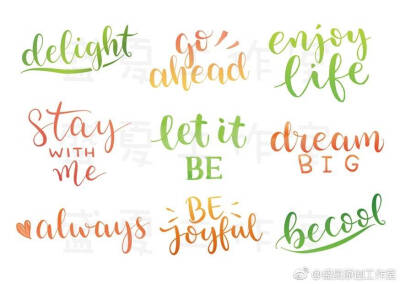 delight
go
ahead
enjoy
life
stay
WITH
me
let it
BE
dream
BIG
always
BE
joyful
becool
盛夏工作室
@盛夏原创工作室